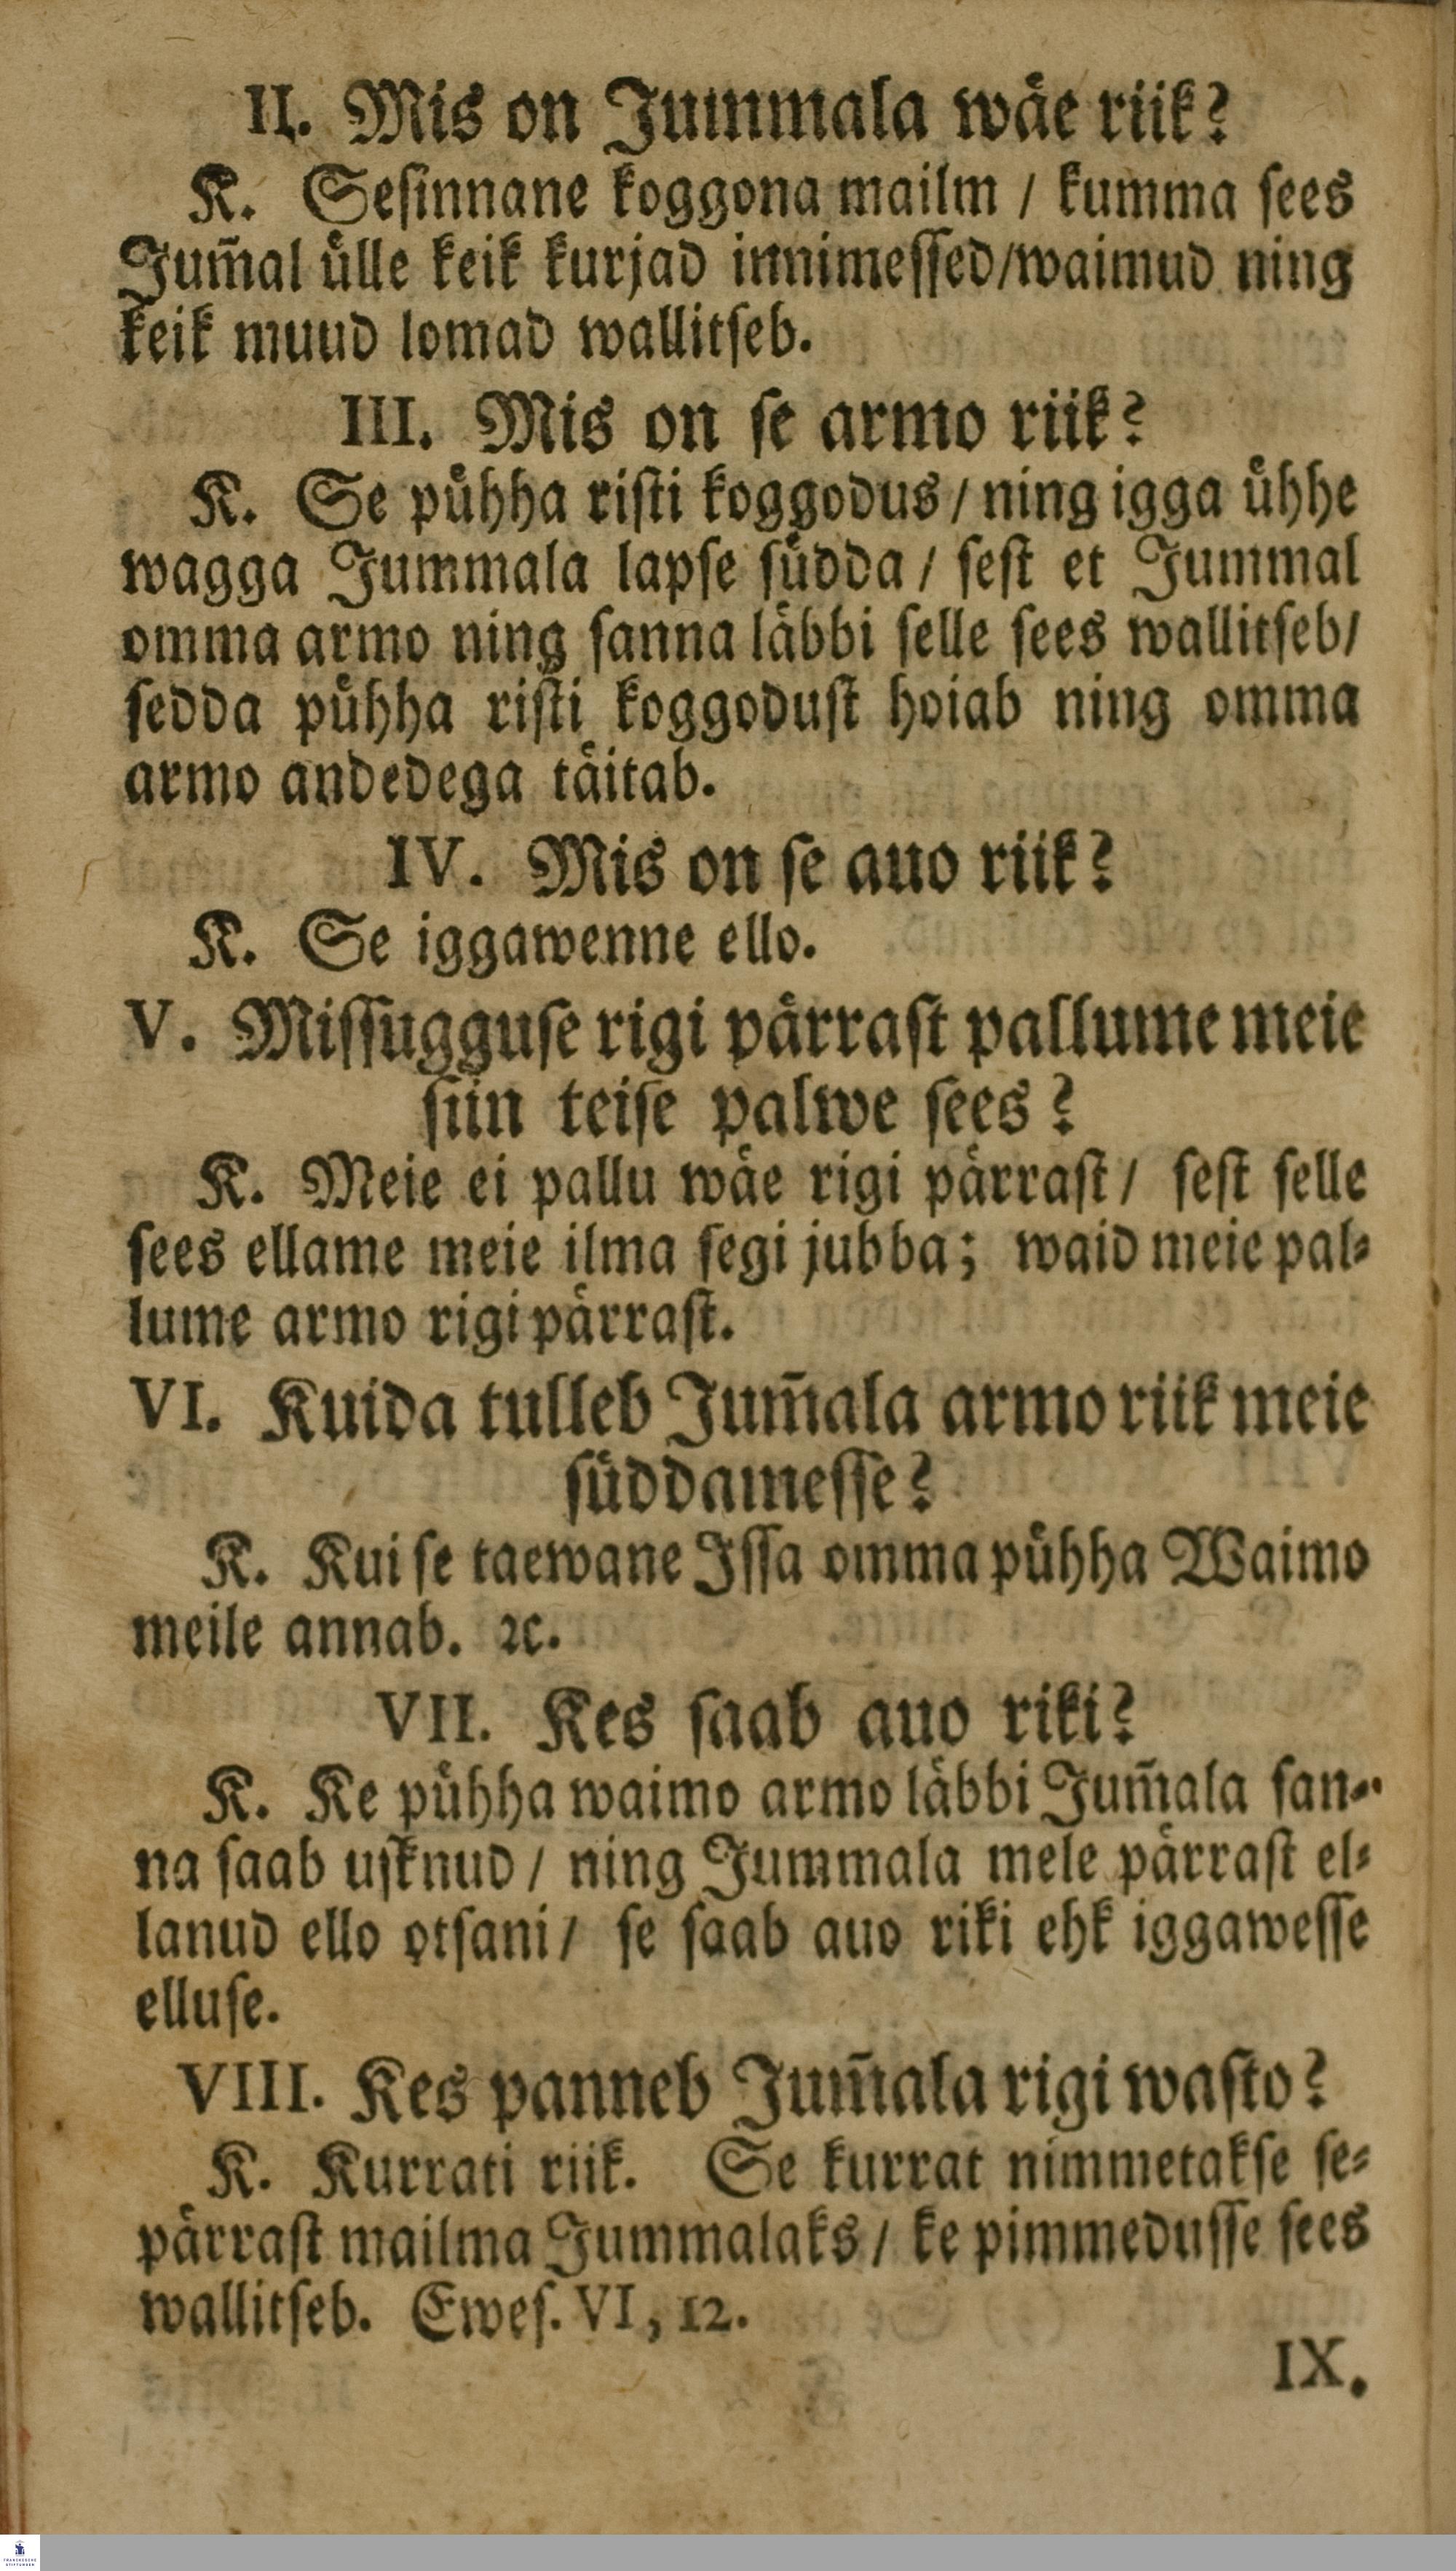 II. Mis on Jummala wäe riik?
K. Sesinnane koggona mailm / kumma sees
Jum̄al ülle keik kurjad innimessed/waimud ning
keik muud lomad wallitseb.
III. Mis on se armo riik?
K. Se pühha risti koggodus / ning igga ühhe
wagga Jummala lapse südda / sest et Jummal
omma armo ning sanna läbbi selle sees wallitseb/
sedda pühha risti koggodust hoiab ning omma
armo andedega täitab.
IV. Mis on se auo riik?
K. Se iggawenne ello.
V. Missugguse rigi pärrast pallume meie
siin teise palwe sees?
K. Meie ei pallu wäe rigi pärrast / sest selle
sees ellame meie ilma segi jubba; waid meie pal-
lume armo rigi pärrast.
VI. Kuida tulleb Jum̄ala armo riik meie
süddamesse?
K. Kui se taewane Issa omma pühha Waimo
meile annab. ꝛc.
VII. Kes saab auo riki?
K. Ke pühha waimo armo läbbi Jum̄ala san-
na saab usknud / ning Jummala mele pärrast el-
lanud ello otsani / se saab auo riki ehk iggawesse
elluse.
VIII. Kes panneb Jum̄ala rigi wasto?
K. Kurrati riik. Se kurrat nimmetakse se-
pärrast mailma Jummalaks / ke pimmedusse sees
wallitseb. Ewes. VI, 12.
IX.
FRANCKESCHE
STIFTUNGEN